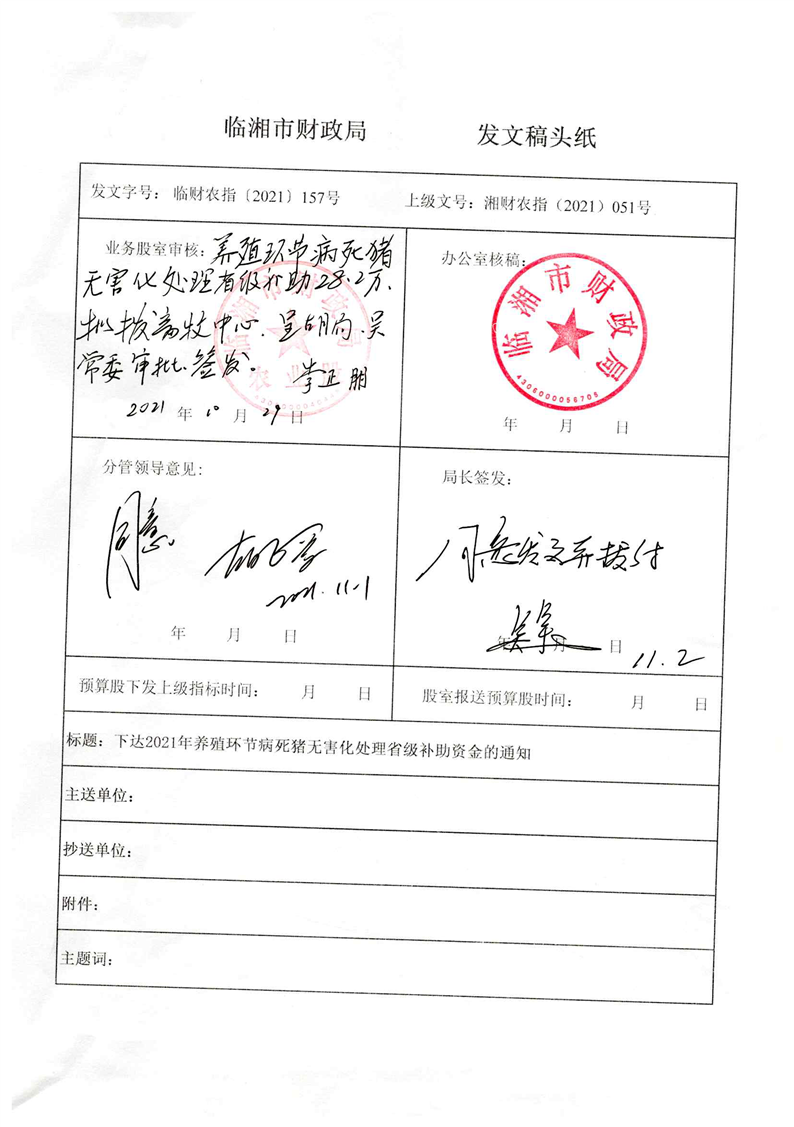 临湘市财政局 发文稿头纸
发文字号： 临财农指〔2021〕157号 上级文号：湘财农指（2021）051号
业务股室审核：养殖环节病死猪
无害化处理省级补助28.2万，
拟拨畜牧中心，呈胡局、吴
常委审批、签发。 李正朋
2021 年 10 月 29 日
临湘市财政局
农业股
办公室核稿：
临湘市财政局
4306000056705
年 月 日
分管领导意见：
同意
2021.11.1
年 月 日
局长签发：
同意发文并拨付
年 月 日 11.2
预算股下发上级指标时间： 月 日 股室报送预算股时间： 月 日
标题：下达2021年养殖环节病死猪无害化处理省级补助资金的通知
主送单位：
抄送单位：
附件：
主题词：